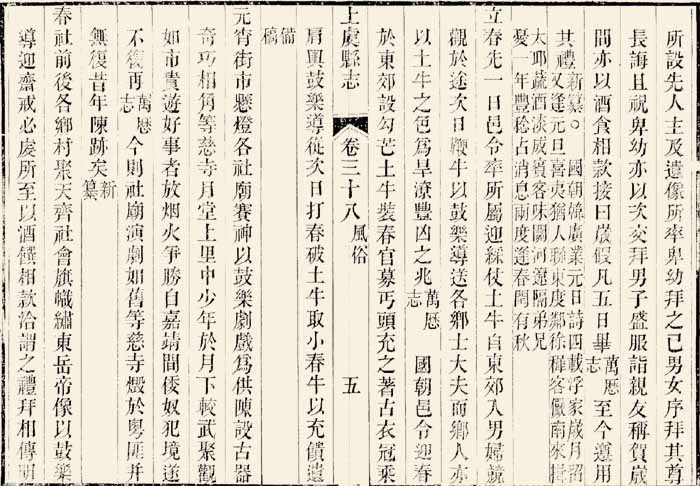 所設先人主及遺像所率卑幼拜之已男女序拜其尊
長誨且祝卑幼亦以次交拜男子盛服詣親友稱賀歲
間亦以酒食相款接曰歲假凡五日畢萬厯志至今遵用
其禮新纂○國朝韓廣業元日詩四載浮家歲月
又逢元旦喜夷猶人聯東度鄰徐稺客儼南來揖
大耶蔬酒淡成賓客味關河遼隔弟兄
憂一年豐稔占消息雨度逢春閏有秋
立春先一日邑令率所屬迎綵仗土牛自東郊入男婦競
觀於途次日鞭牛以鼓樂導送各鄉士大夫而鄉人亦
以土牛之色爲旱潦豐凶之兆萬厯志 國朝邑令迎春
於東郊設勾芒土牛裝春官募丐頭充之著古衣冠乘
上虞縣志 卷三十八 風俗 五
肩輿鼓樂導從次日打春破土牛取小春牛以充饋遺
備稿
元宵街市懸燈各社廟賽神以鼓樂劇戲爲供陳設古器
奇巧相角等慈寺月堂上里中少年於月下較武聚觀
如市貴遊好事者放烟火爭勝自嘉靖間倭奴犯境遂
不復再萬厯志今則社廟演劇如舊等慈寺燬於粵匪并
無復昔年陳跡矣新纂
春社前後各鄉村聚天齊社會旗幟繡東岳帝像以鼓樂
導迎齋戒必虔所至以酒饌相款洽謂之禮拜相傳明